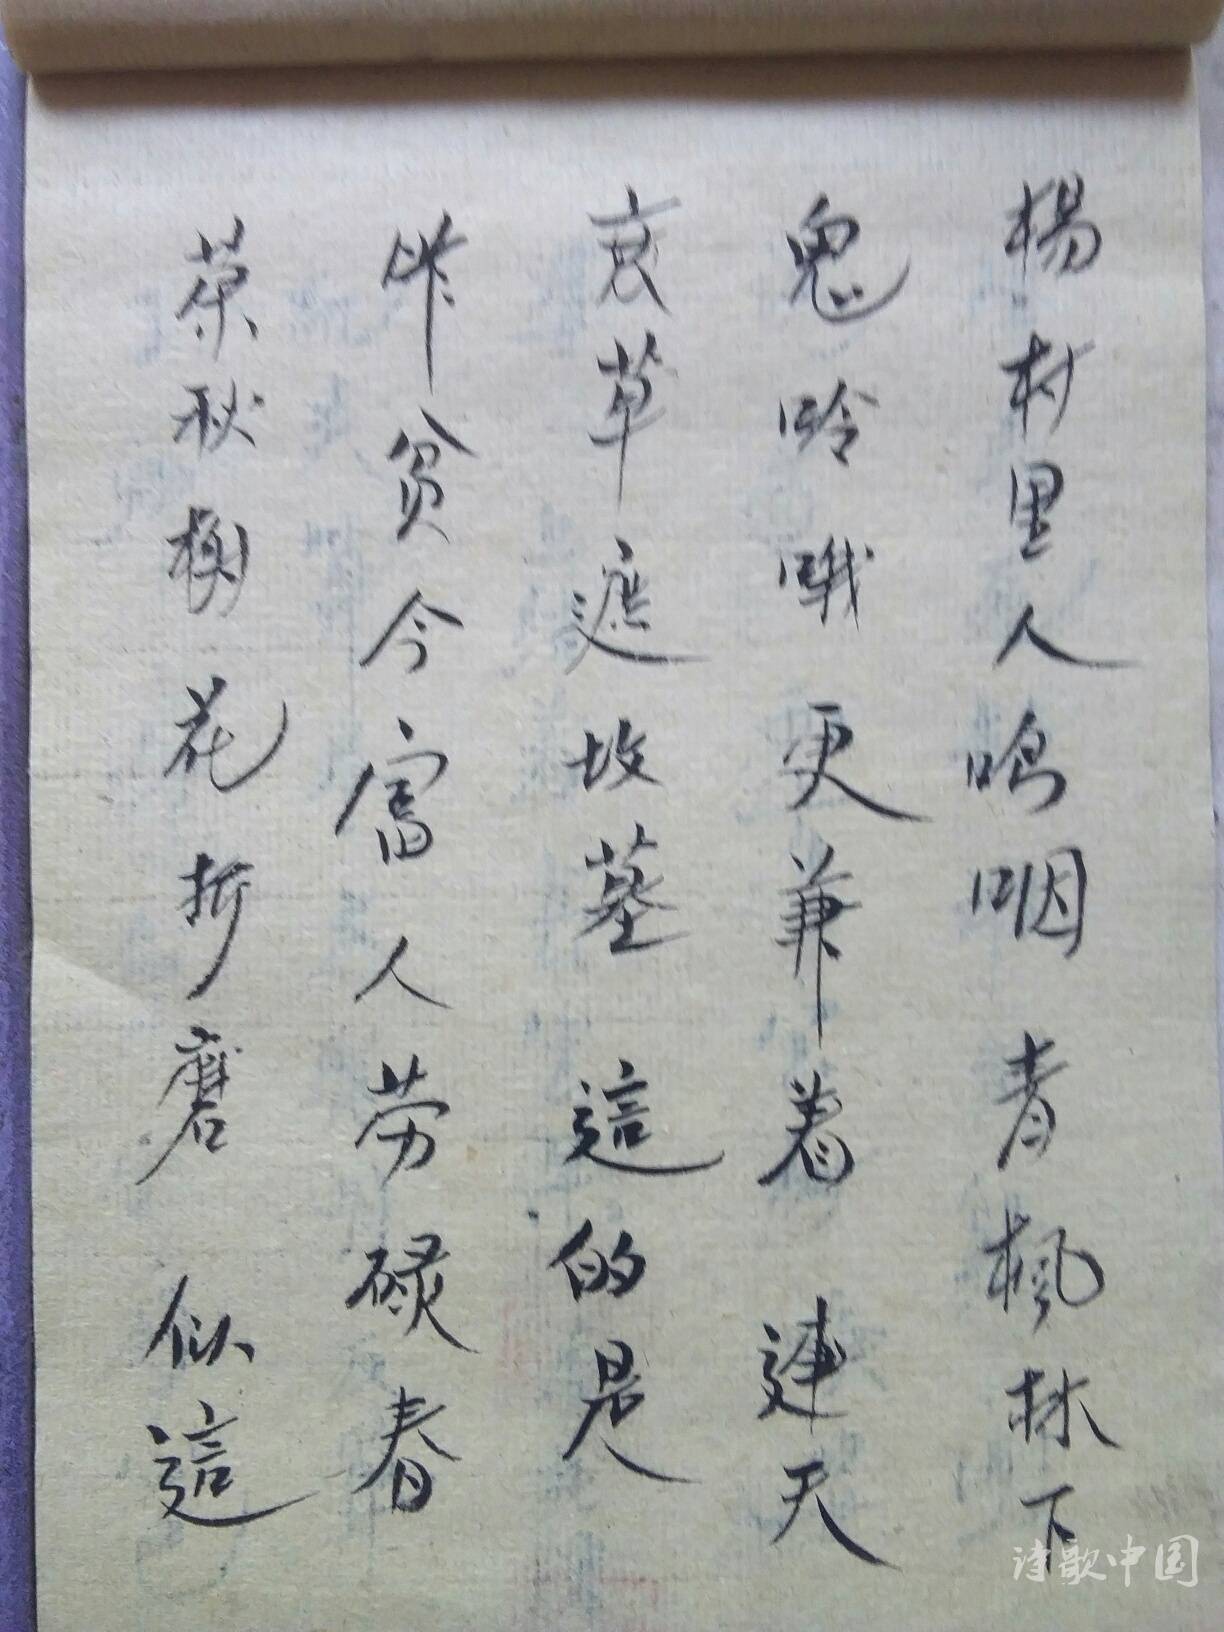 楊村里人嗚咽青楓林下
鬼吟哦更兼着連天
衰草遮坟墓這的是
昨贫今富人劳碌春
荣秋謝花折磨似這
诗歌中国